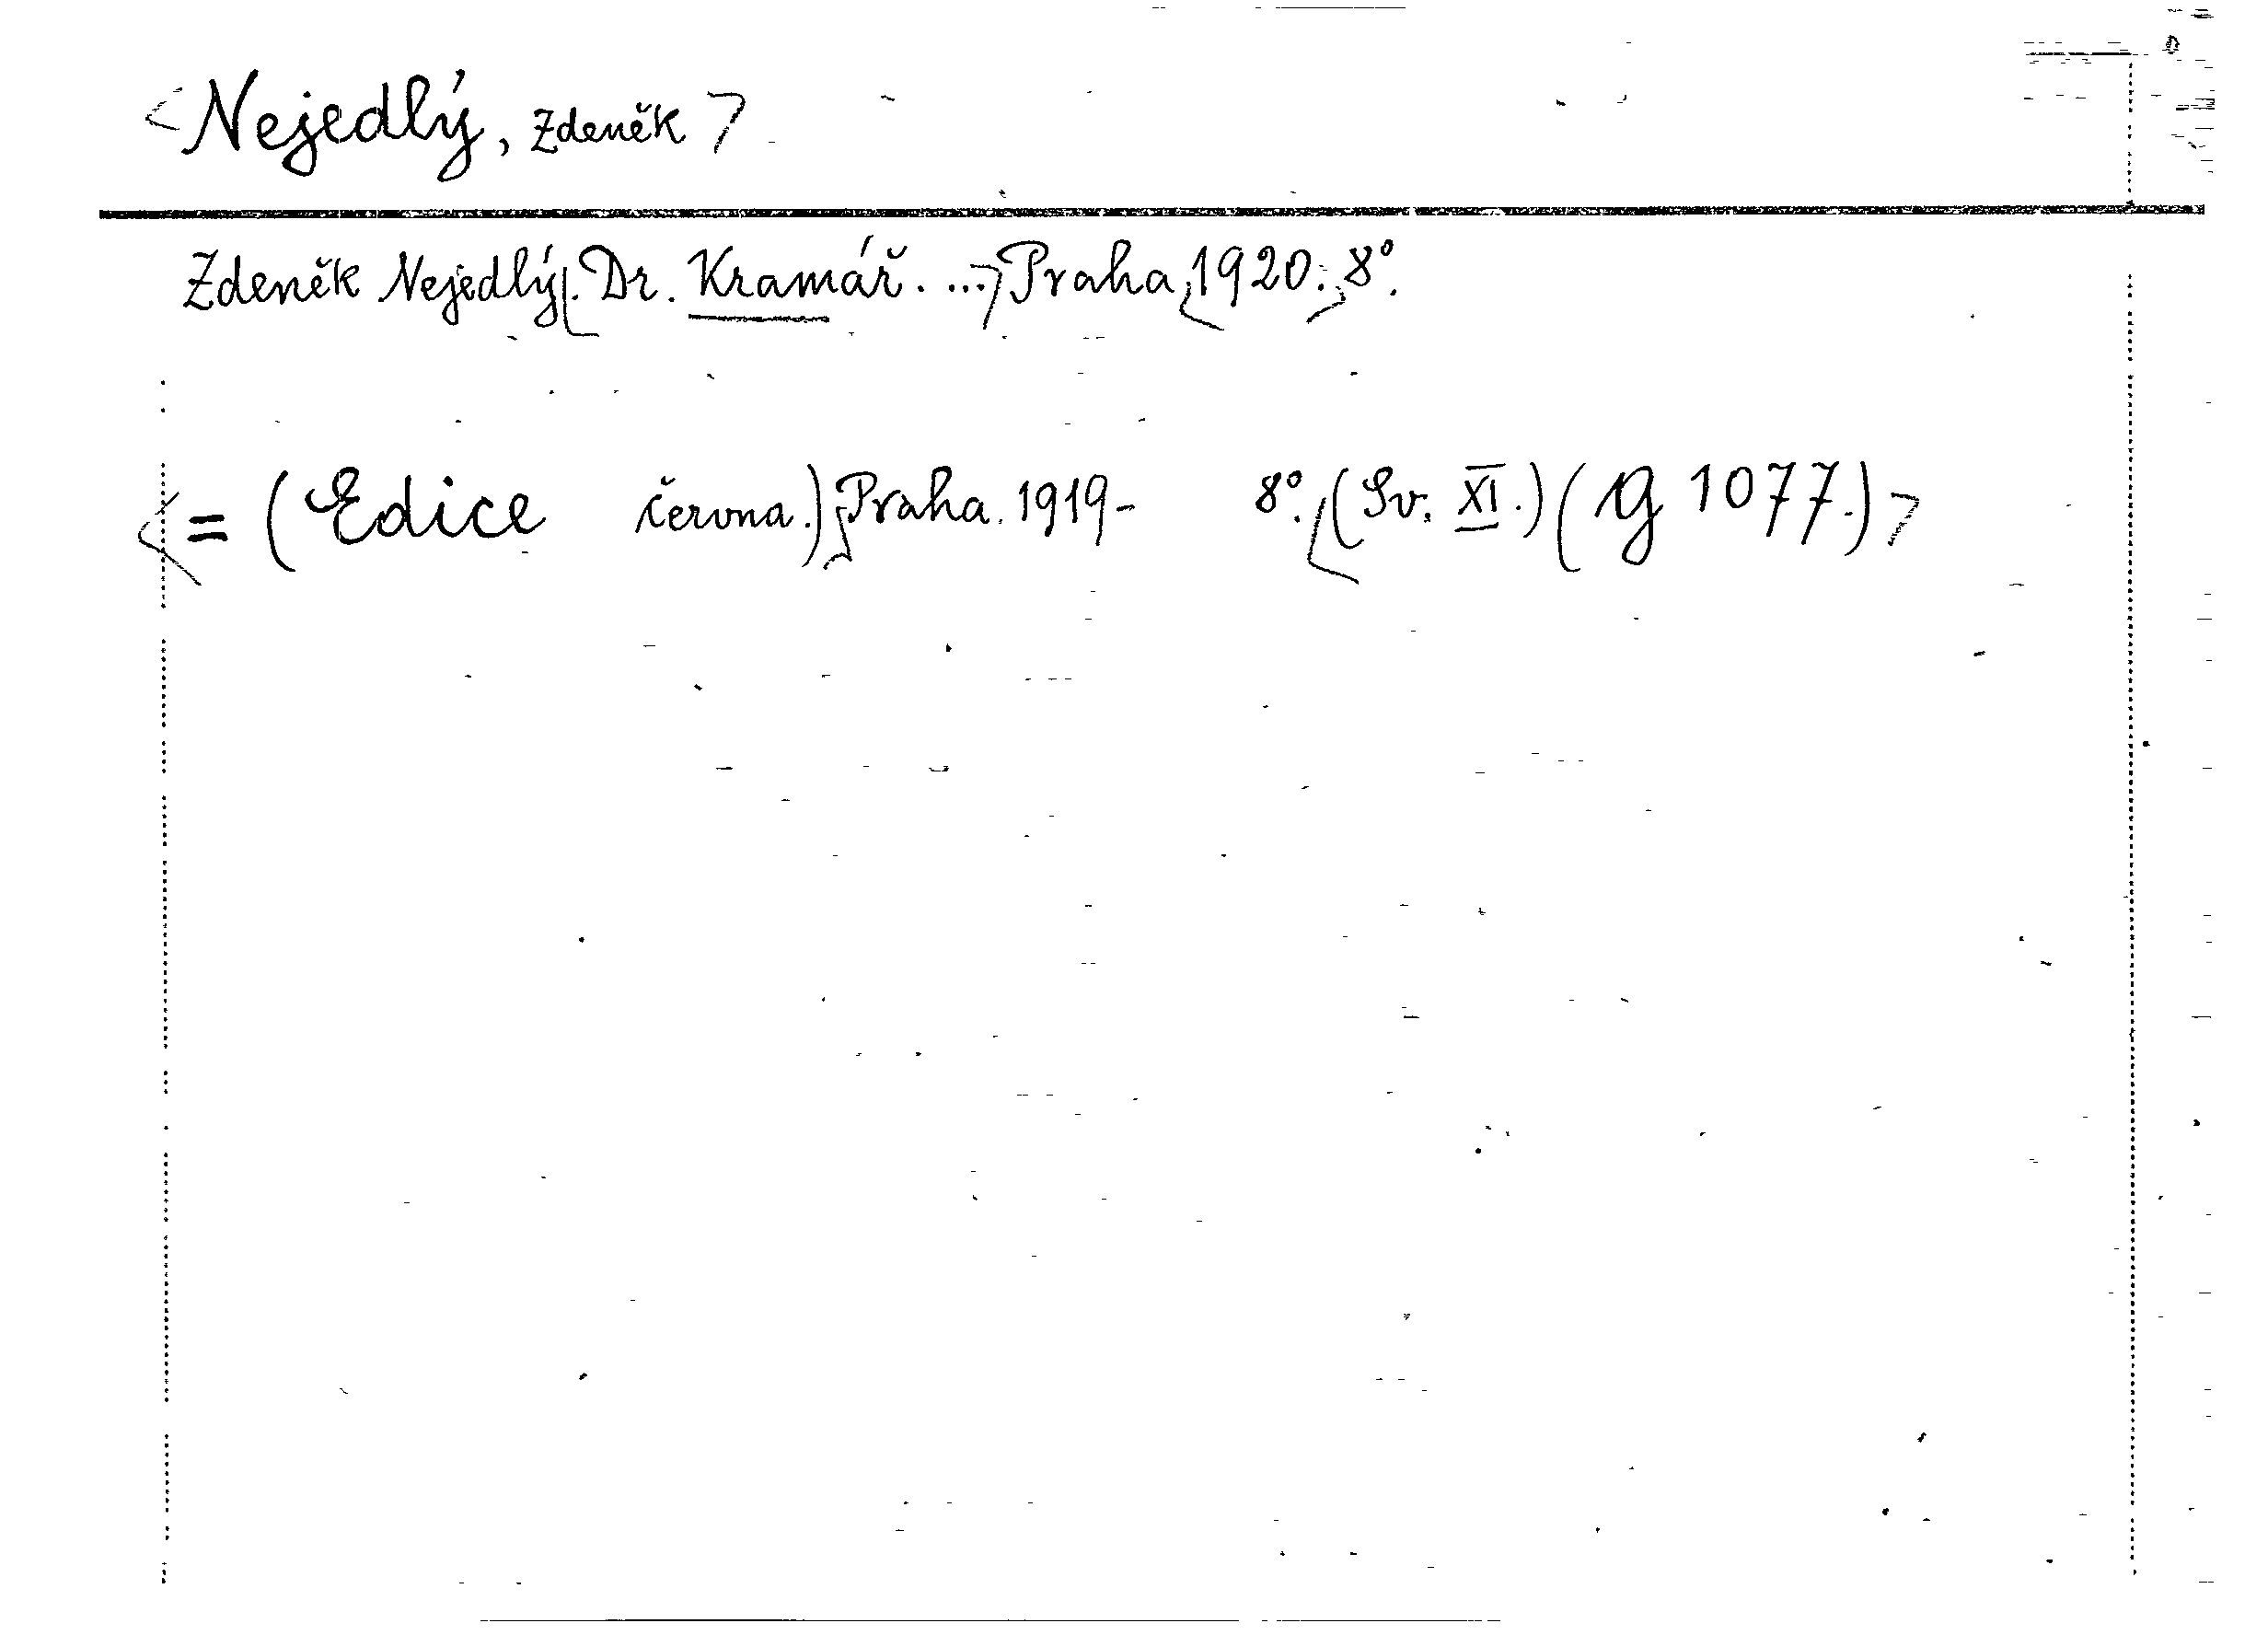 <Nejedlý, Zdeněk>
Zdeněk Nejedlý<. Dr. Kramář. ...> Praha<, 1920.> 8°.
<= (Edice června.)> Praha. 1919- 8°. <(Sv. XI.) (G 1077.)>